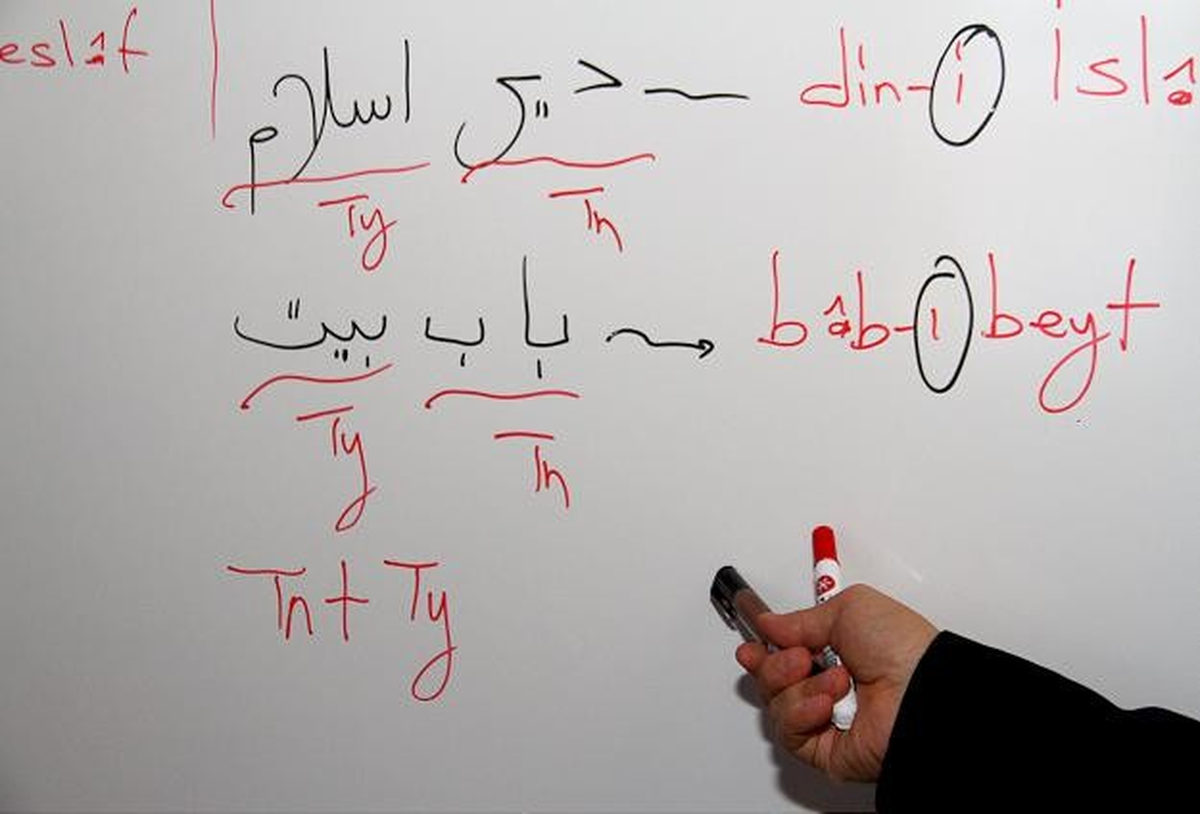 eslâf
دین اسلام — din-i İslâ
Ty Tn
باب بیت → bâb-ı beyt
Ty Tn
Tn + Ty